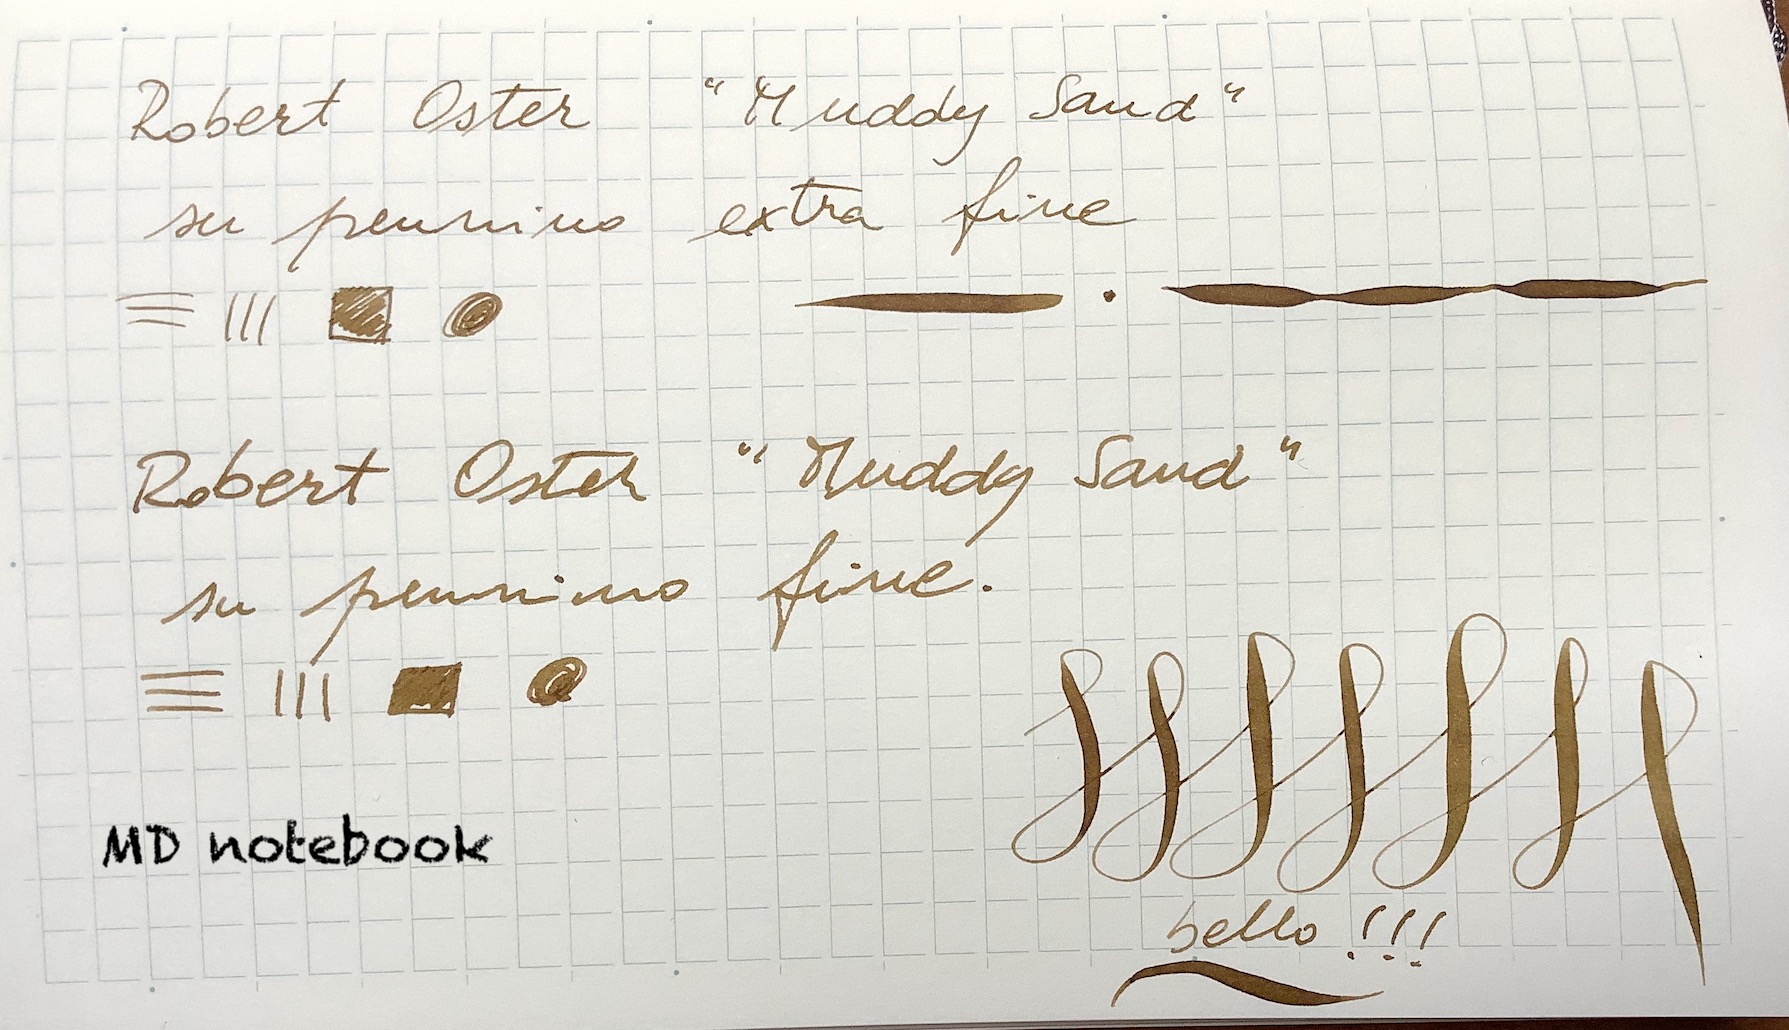 Robert Oster "Muddy Sand"
su pennino extra fine
Robert Oster "Muddy Sand"
su pennino fine.
MD notebook
bello !!!